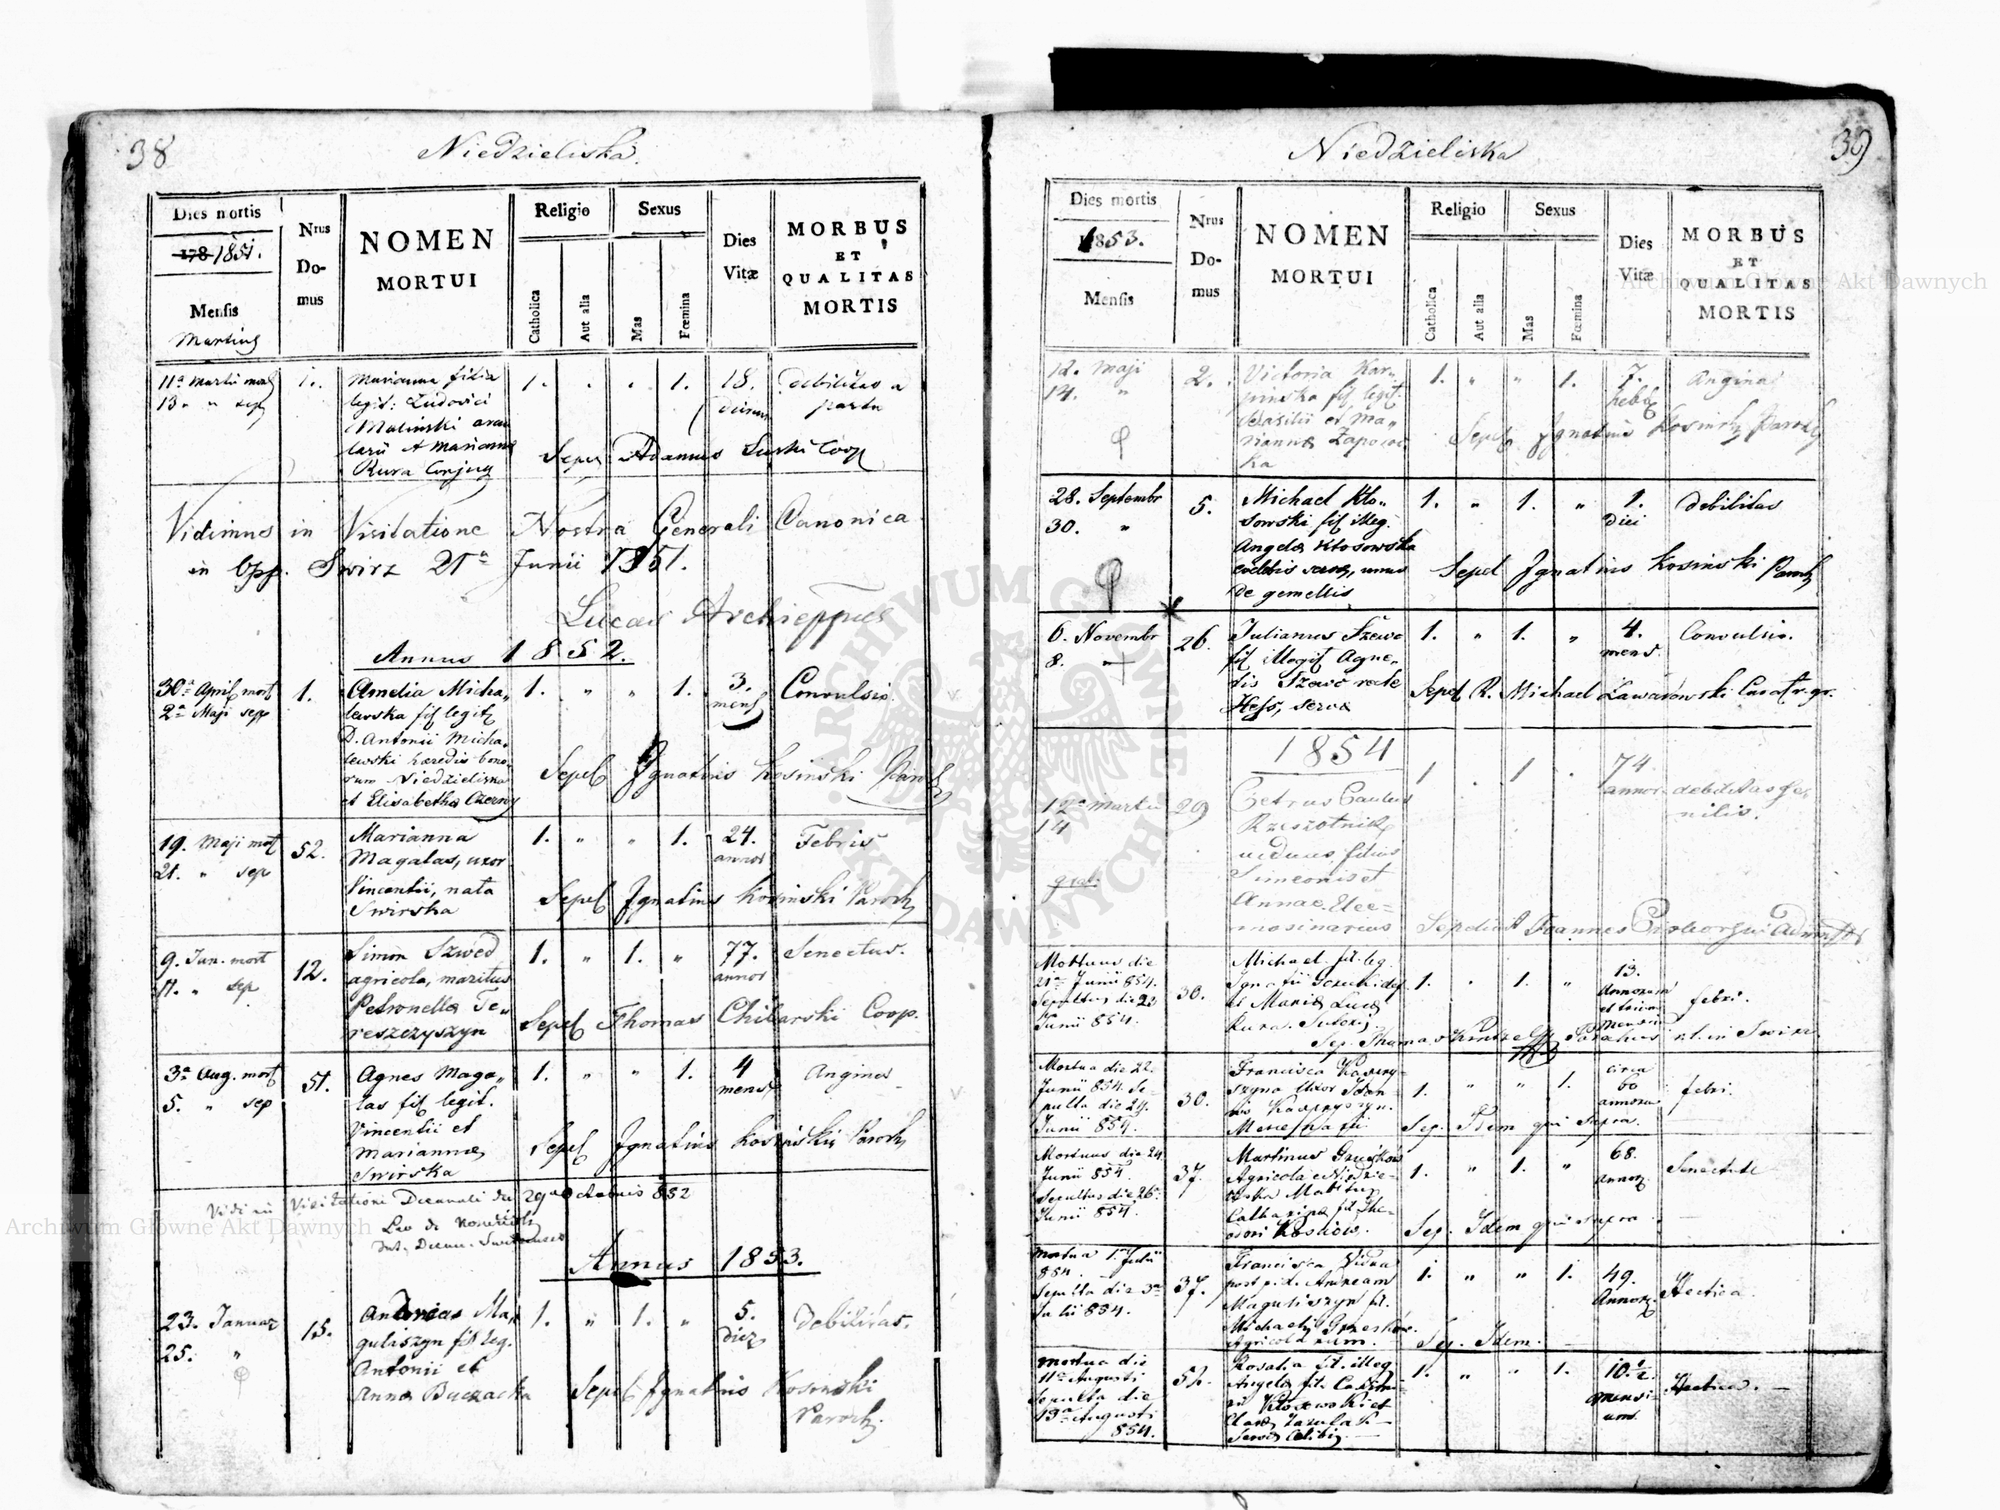 38
Niedzieliska
Dies mortis
178 1851.
Mensis
Martius
Nrus
Do-
mus
NOMEN
MORTUI
Religio
Catholica
Aut alia
Sexus
Mas
Fœmina
Dies
Vitæ
MORBUS
ET
QUALITAS
MORTIS
11a Martii mort
13. " sep
1.
Marianna filia
legit: Ludovici
Malinski
A Marianna
Kura Conjug
1.
1.
18.
dierum
debilitas a
partu
Sepel Adamus Surski Coop
Vidimus in Visitatione Nostra Generali Canonica
in Opp. Swirz 21a Junii 1851.
Lucas Archieppus
Annus 1852.
30a April mort
2a Maji sep
1.
Amelia Micha-
lewska fil legit
D. Antonii Micha-
lewski hæredis bono-
rum Niedzieliska
et Elisabetha Czerny
1. " " 1.
3.
mens
Convulsio
Sepel Ignatius Kosinski Paroch
19. Maji mort
21. " sep
52.
Marianna
Magalas, uxor
Vincentii, nata
Swirska
1. " " 1.
24.
annor
Febris
Sepel Ignatius Kosinski Paroch
9. Jun. mort
11. " sep
12.
Simon Szwed
agricola, maritus
Petronella Te-
reszczyszyn
1. " 1. "
77.
annor
Senectus.
Sepel Thomas Chilarski Coop.
3a Aug. mort
5. " sep
51.
Agnes Maga-
las fil legit.
Vincentii et
Marianna
Swirska
1. " " 1.
4
mens
Angina
Sepel Ignatius Kosinski Paroch
Vidi in Visitatione Decanali die 29a Octobris 852
Leo de
Annus 1853.
23. Januar
25. "
15.
Antonius Ma-
guliszyn fil leg.
Antonii et
Anna Buczacka
1. " 1. "
5.
dier
Debilitas.
Sepel Ignatius Kosinski
Paroch.
39
Niedzieliska
Dies mortis
1853.
Mensis
Nrus
Do-
mus
NOMEN
MORTUI
Religio
Catholica
Aut alia
Sexus
Mas
Fœmina
Dies
Vitæ
MORBUS
ET
QUALITAS
MORTIS
12. Maji
14. "
2.
Victoria Kar-
pinska fil legit.
Basilii et Ma-
rianna Zapotoc
ka
1. " " 1.
7.
hebd
Angina
Sepel Ignatius Kosinski Paroch
28. Septembr
30. "
5.
Michael Kło-
sowski fil illeg.
Angela Kłosowska
cælebis serv, unus
de gemellis
1. " 1. "
1.
diei
debilitas
Sepel Ignatius Kosinski Paroch
6. Novembr
8. "
26.
Julianus Szewc
fil illegit Agne-
tis Szewc recte
Hess, serva
1. " 1. "
4.
mens.
Convulsio.
Sepel R. Michael Ławarowski Curat r. gr.
1854
12a Martii
14
29
Petrus Paulus
Rzeszotnik
viduus filius
Simeonis et
Annae. Elee-
mosinarius
1 . 1 .
74.
annor
debilitas se-
nilis.
Sepelivit Joannes
Mortuus die
21a Junii 854.
Sepultus die 23
Junii 854.
30.
Michael fil. leg.
et Maria Lucas
Kura.
1. " 1. "
13.
Annorum
mensium
febri.
Sep. Thomas
r.l. in Swirz
Mortua die 22.
Junii 854. Se-
pulta die 24.
Junii 854.
30.
Francisca Karpy-
szyna Uxor Joan-
nis Karpyszyn.
1. " " 1.
circa
60
annorum
febri.
Sep. Idem qui supra.
Mortuus die 24
Junii 854.
Sepultus die 26.
Junii 854.
37.
Martinus Gruszkow
Agricola Niedzie-
liska Maritus
Catharina fil. The-
odori Koskow.
1. " 1. "
68.
annor.
Senectute
Sep. Idem qui supra
Mortua 1a Julii
854.
Sepulta die 3a
Julii 854.
37.
Francisca Vidua
post p. d. Andream
Maguliszyn fil.
Michaelis
Agricolarum.
1. " " 1.
49.
Annor.
Hectica.
Sep. Idem.
Mortua die
11a Augusti
Sepulta die
13a Augusti
854.
52.
Rosalia fil. illeg
Angela fil. Casim-
iri Kłosowski et
Clara
Serva Cælibis
1. " " 1.
10 1/2.
mensi-
um.
Hectica.
Archiwum Główne Akt Dawnych
Archiwum Główne Akt Dawnych
ARCHIWUM GŁÓWNE AKT DAWNYCH